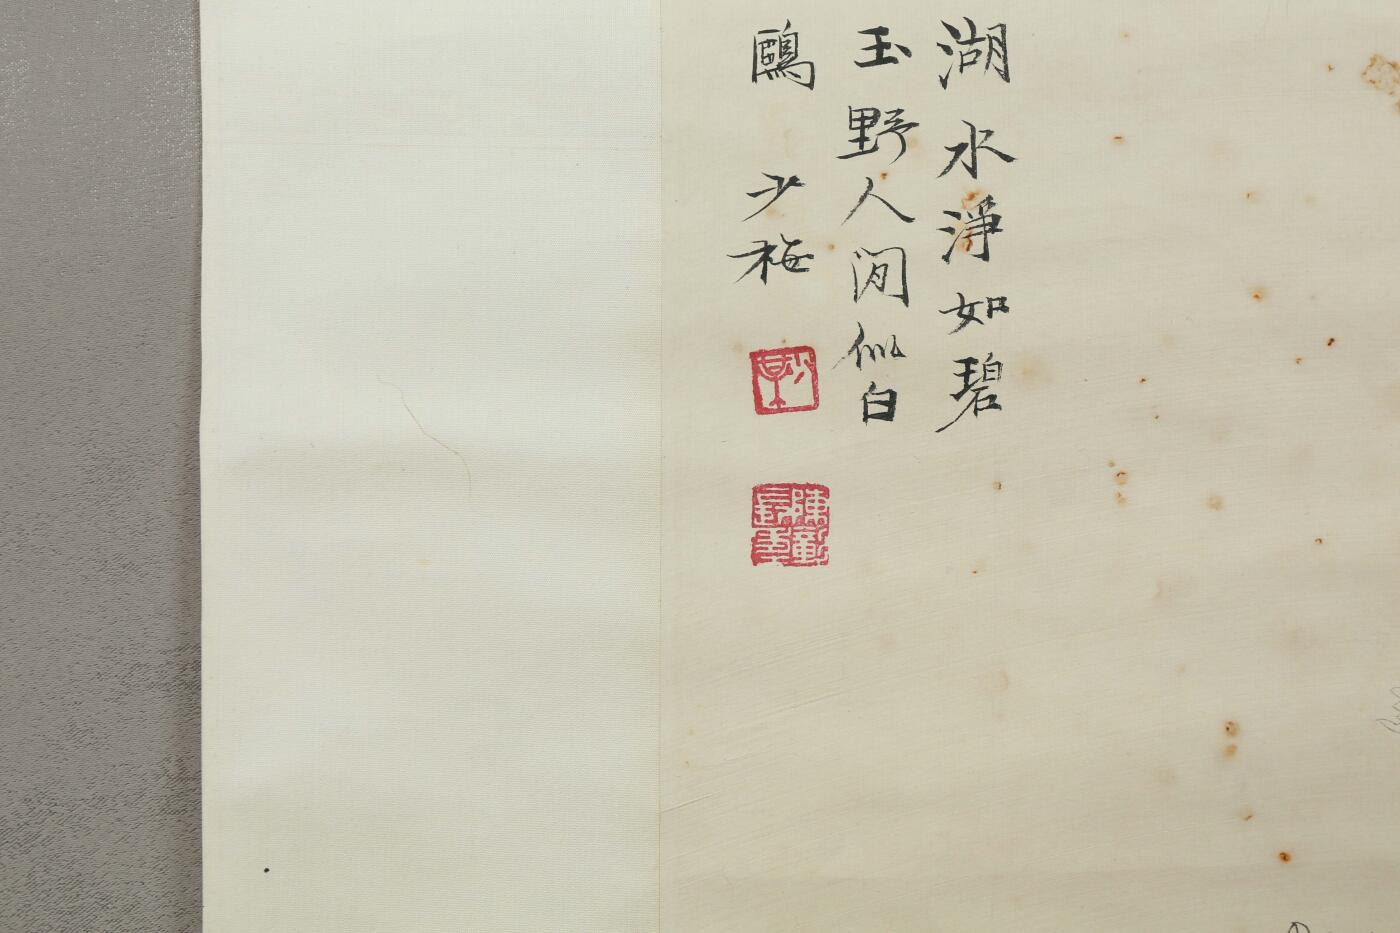 湖水淨如碧
玉野人閒似白
鷗 少梅
陳彰